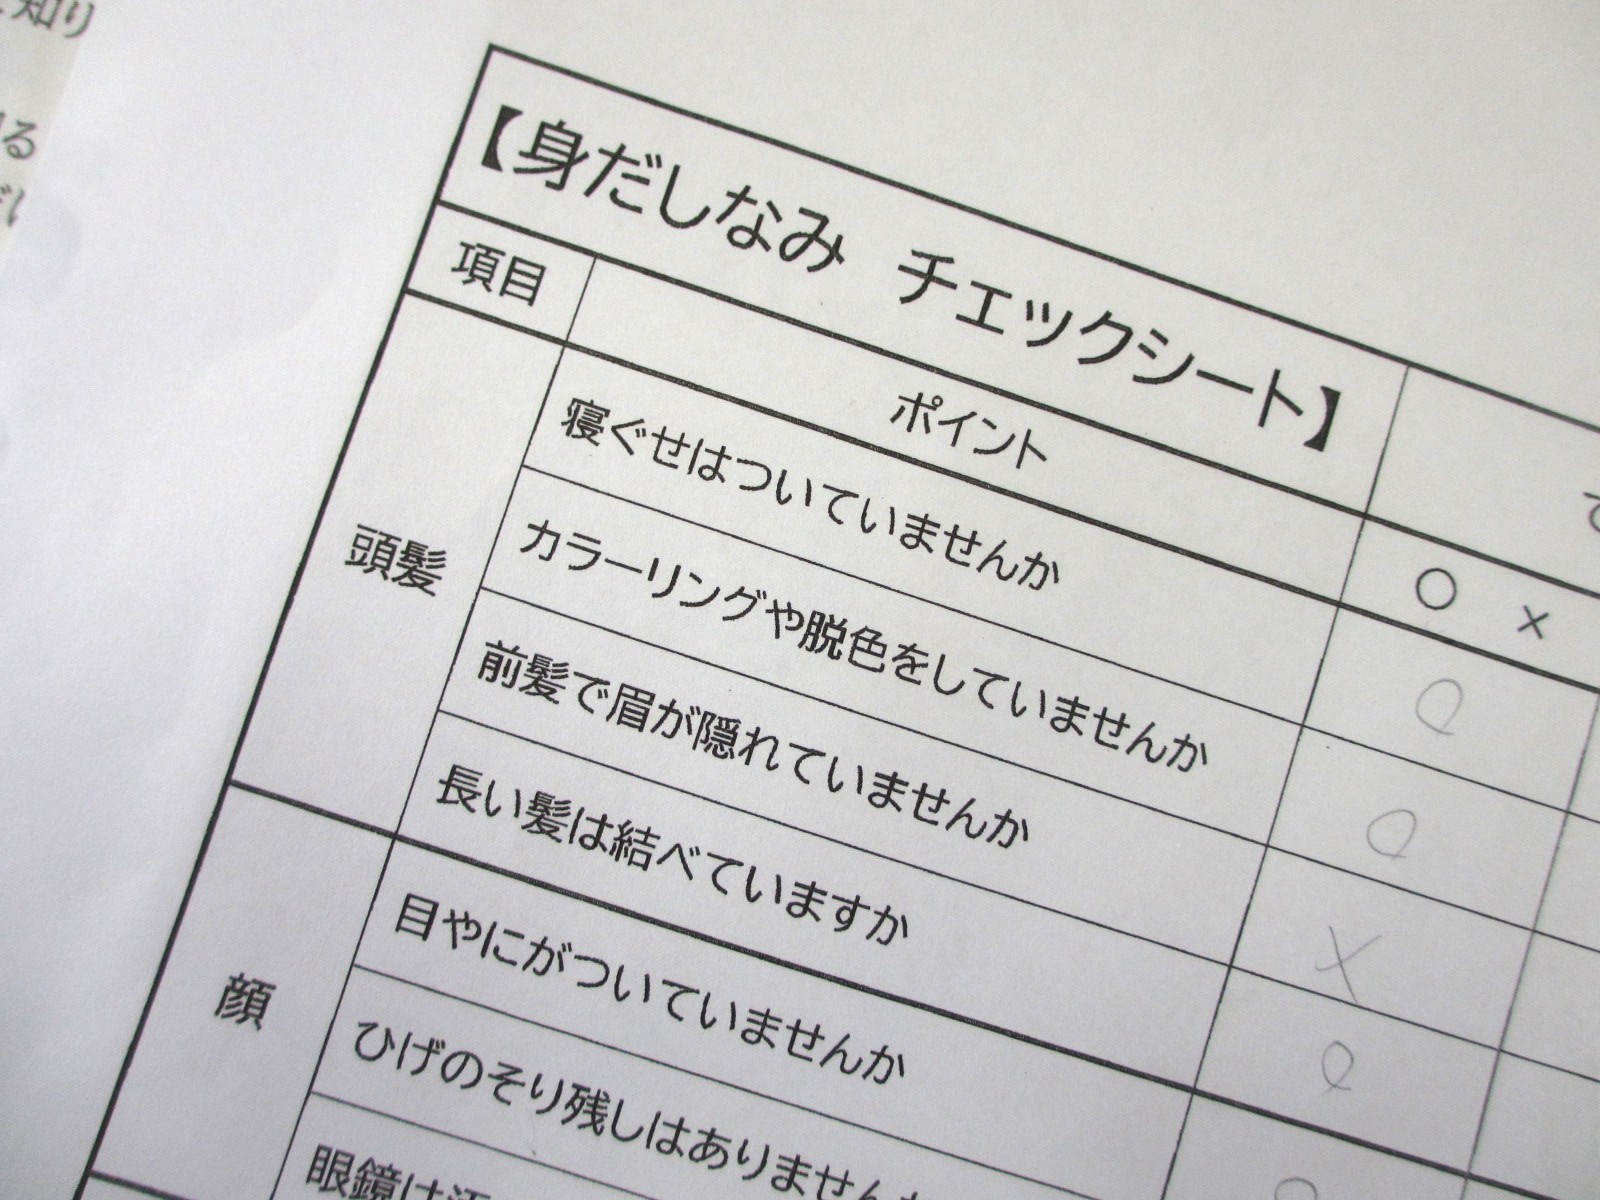 知り
る
【身だしなみ チェックシート】
項目
ポイント
○ ×
頭髪
寝ぐせはついていませんか
○
カラーリングや脱色をしていませんか
○
前髪で眉が隠れていませんか
×
長い髪は結べていますか
○
顔
目やにがついていませんか
ひげのそり残しはありません
眼鏡は